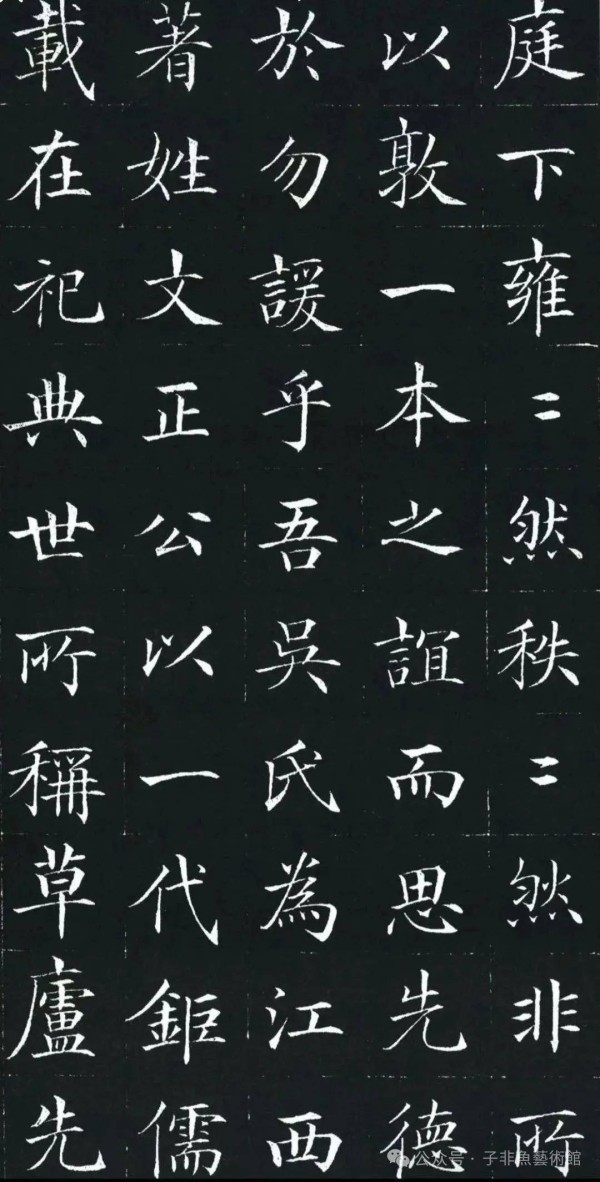 庭下雍〻然秩〻然非所
以敦一本之誼而思先德
於勿諼乎吾吳氏為江西
著姓文正公以一代鉅儒
載在祀典世所稱草廬先
公众号 · 子非魚藝術館